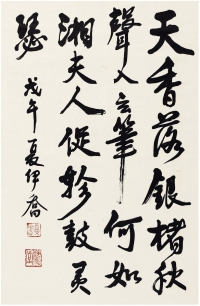 天香落銀楮秋
聲入云筆何如
湘夫人促軫鼓灵
瑟
戊午夏伊喬